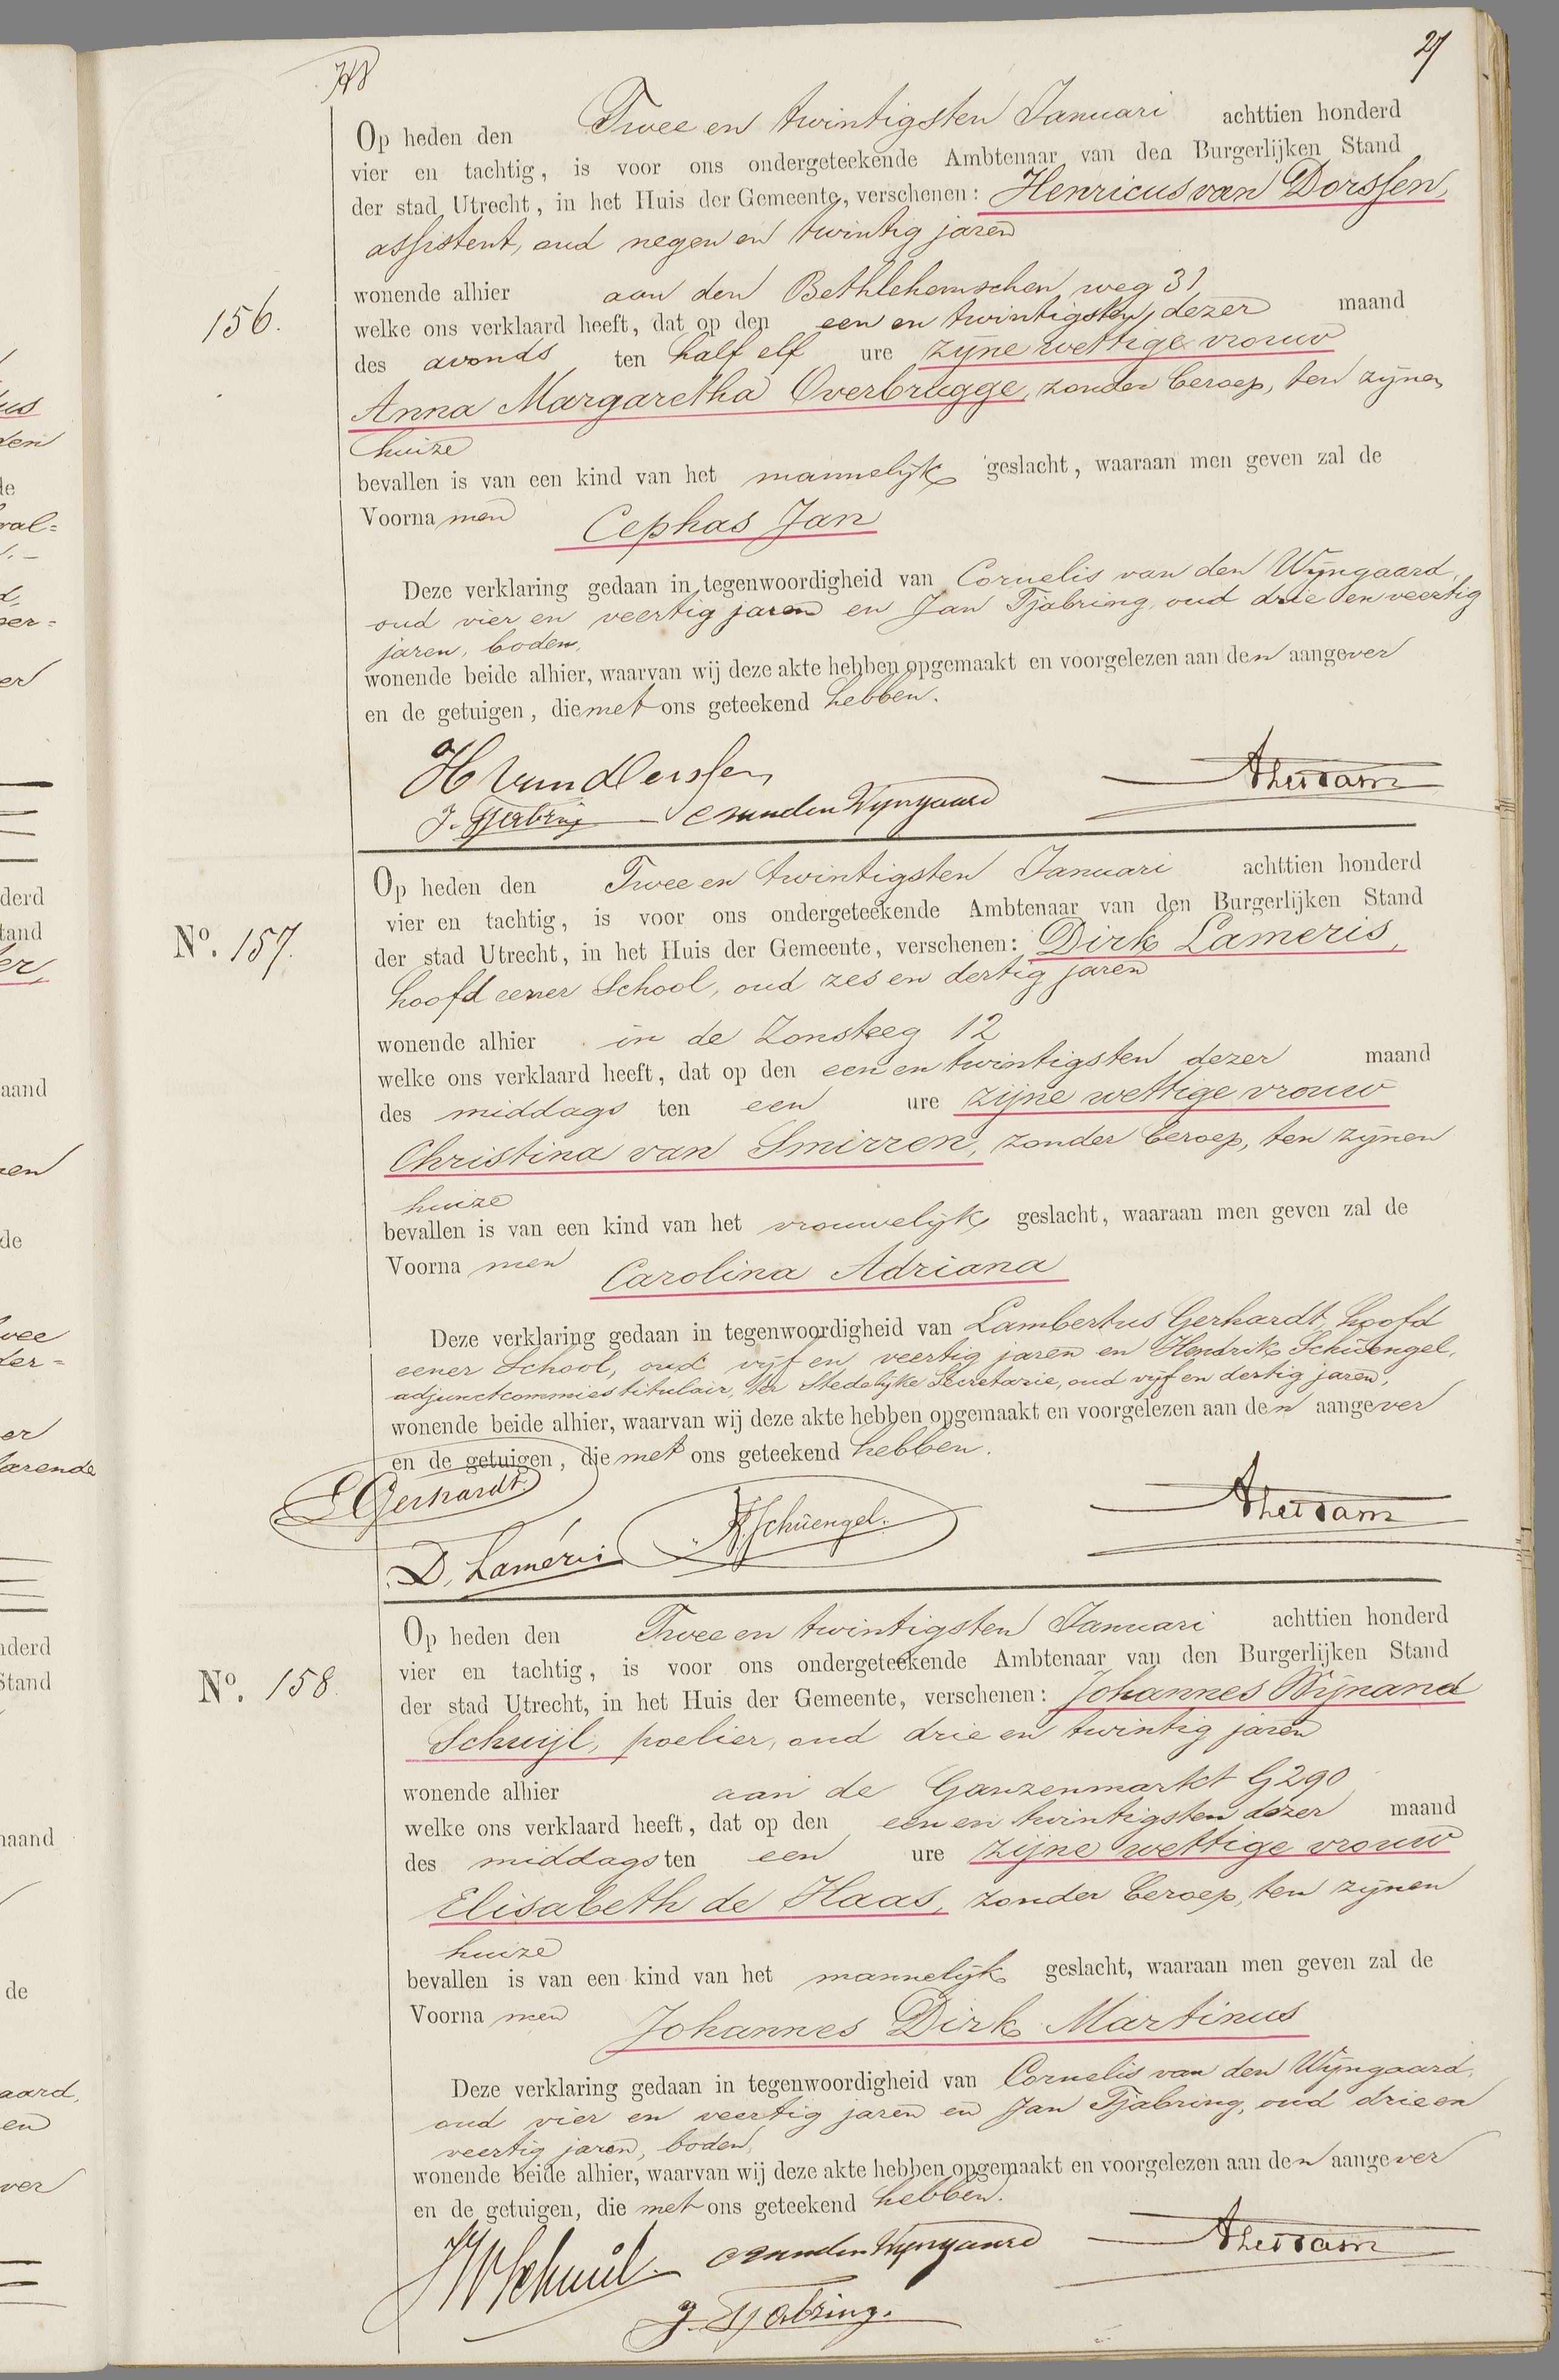 27
Op heden den Twee en twintigsten Januari achttien honderd
vier en tachtig, is voor ons ondergeteekende Ambtenaar van den Burgerlijken Stand
der stad Utrecht, in het Huis der Gemeente, verschenen: Henricus van Dorssen,
assistent, oud negen en twintig jaren
wonende alhier aan den Bethlehemschen weg 31
156.
welke ons verklaard heeft, dat op den een en twintigsten dezer maand
des avonds ten half elf ure zijne wettige vrouw
Anna Margaretha Overbrugge, zonder beroep, ten zijnen
huize
bevallen is van een kind van het mannelijk geslacht, waaraan men geven zal de
Voornamen Cephas Jan
Deze verklaring gedaan in tegenwoordigheid van Cornelis van den Wijngaard,
oud vier en veertig jaren en Jan Tjabring, oud drie en veertig
jaren, boden,
wonende beide alhier, waarvan wij deze akte hebben opgemaakt en voorgelezen aan den aangever
en de getuigen, die met ons geteekend hebben.
H van Dorssen
J. Tjabring C van den Wijngaard
Op heden den Twee en twintigsten Januari achttien honderd
vier en tachtig, is voor ons ondergeteekende Ambtenaar van den Burgerlijken Stand
No. 157.
der stad Utrecht, in het Huis der Gemeente, verschenen: Dirk Lameris,
hoofd eener School, oud zes en dertig jaren
wonende alhier in de Zonsteeg 12
welke ons verklaard heeft, dat op den een en twintigsten dezer maand
des middags ten een ure zijne wettige vrouw
Christina van Smirren, zonder beroep, ten zijnen
huize
bevallen is van een kind van het vrouwelijk geslacht, waaraan men geven zal de
Voornamen Carolina Adriana
Deze verklaring gedaan in tegenwoordigheid van Lambertus Gerhardt, hoofd
eener School, oud vijf en veertig jaren en Hendrik Schüengel,
adjunctcommies titulair, ter Stedelijke Secretarie, oud vijf en dertig jaren,
wonende beide alhier, waarvan wij deze akte hebben opgemaakt en voorgelezen aan den aangever
en de getuigen, die met ons geteekend hebben.
L Gerhardt.
D. Laméris H Schüengel.
Op heden den Twee en twintigsten Januari achttien honderd
vier en tachtig, is voor ons ondergeteekende Ambtenaar van den Burgerlijken Stand
No. 158.
der stad Utrecht, in het Huis der Gemeente, verschenen: Johannes Wijnand
Schuijl, poelier, oud drie en twintig jaren
wonende alhier aan de Ganzenmarkt G 290
welke ons verklaard heeft, dat op den een en twintigsten dezer maand
des middags ten een ure zijne wettige vrouw
Elisabeth de Haas, zonder beroep, ten zijnen
huize
bevallen is van een kind van het mannelijk geslacht, waaraan men geven zal de
Voornamen Johannes Dirk Martinus
Deze verklaring gedaan in tegenwoordigheid van Cornelis van den Wijngaard,
oud vier en veertig jaren en Jan Tjabring, oud drie en
veertig jaren, boden,
wonende beide alhier, waarvan wij deze akte hebben opgemaakt en voorgelezen aan den aangever
en de getuigen, die met ons geteekend hebben.
JW Schuil. C van den Wijngaard
J. Tjabring.